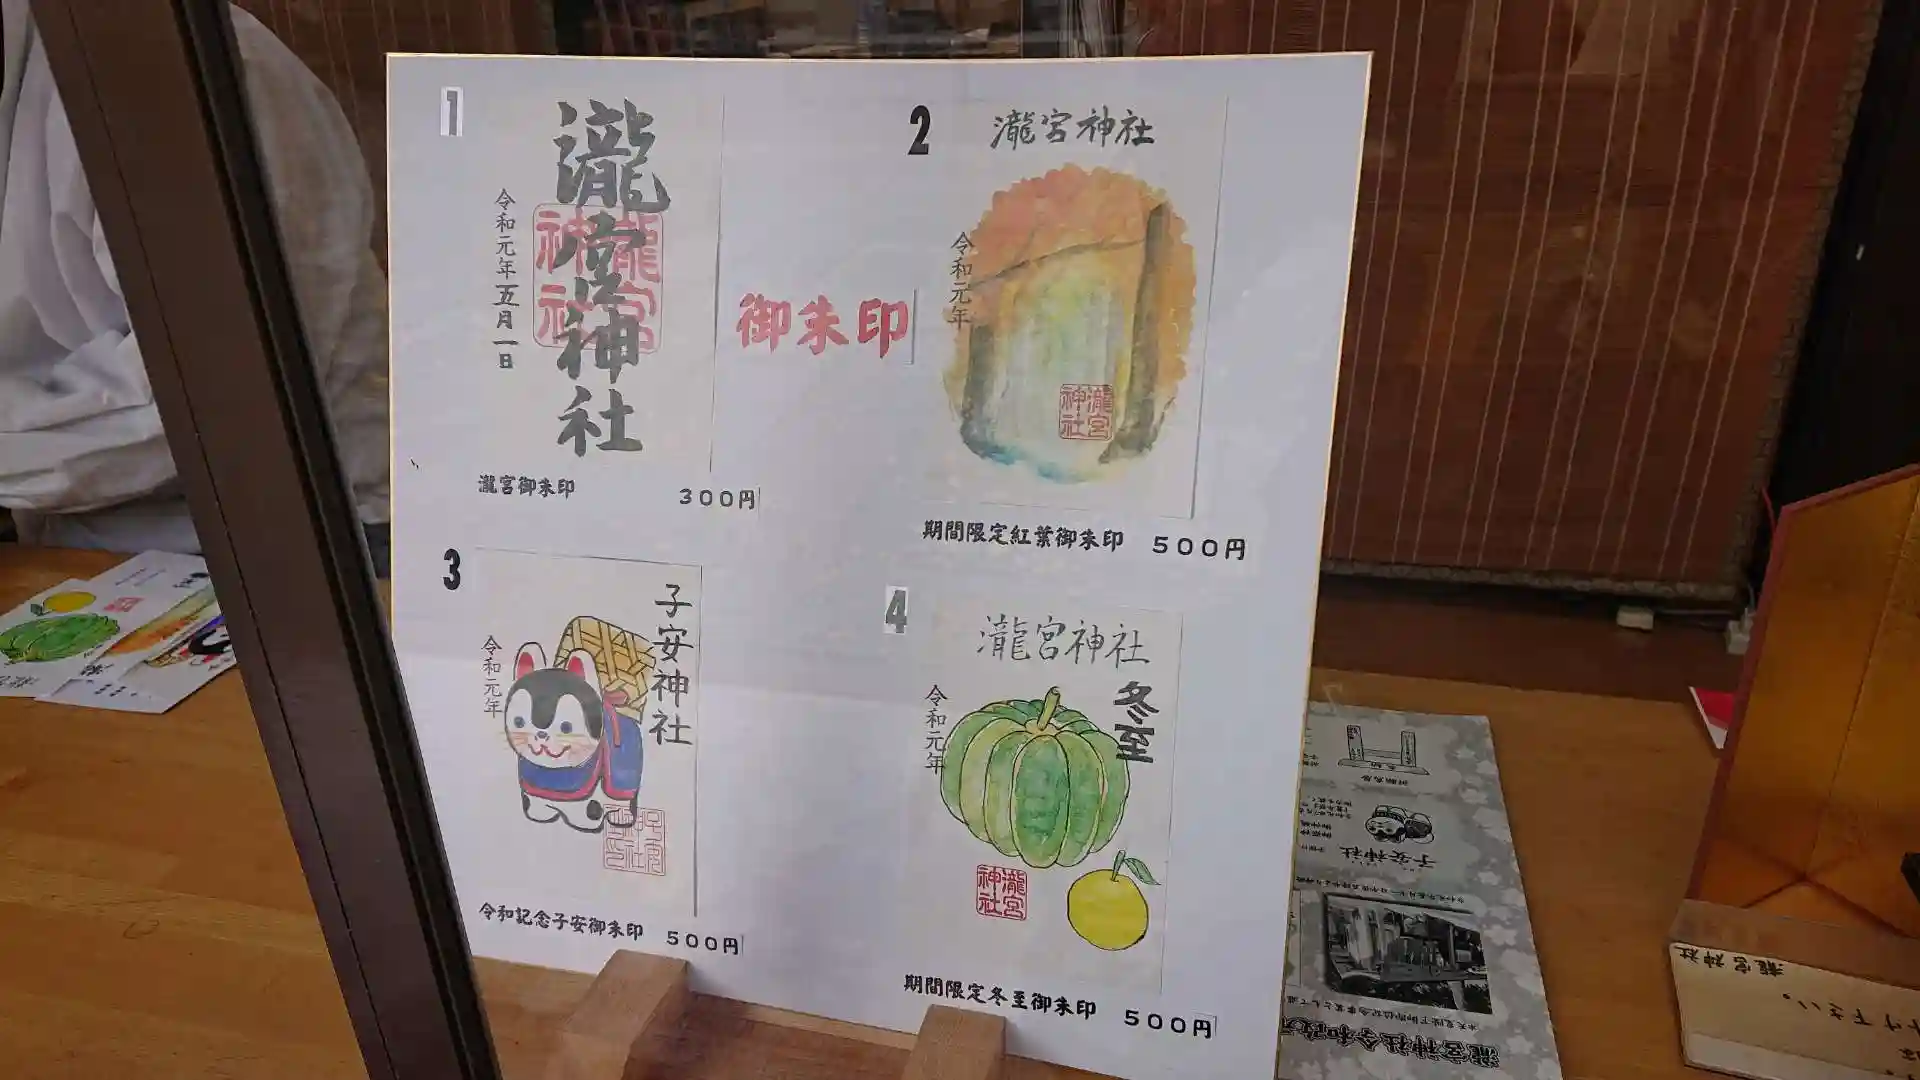 1
瀧宮神社
令和元年五月一日
瀧宮神社
瀧宮御朱印 300円
御朱印
2
瀧宮神社
令和元年
瀧宮神社
期間限定紅葉御朱印 500円
3
子安神社
令和元年
令和記念子安御朱印 500円
4
瀧宮神社
冬至
令和元年
瀧宮神社
期間限定冬至御朱印 500円
子安神社
瀧宮神社令和
瀧宮神社
下さい。